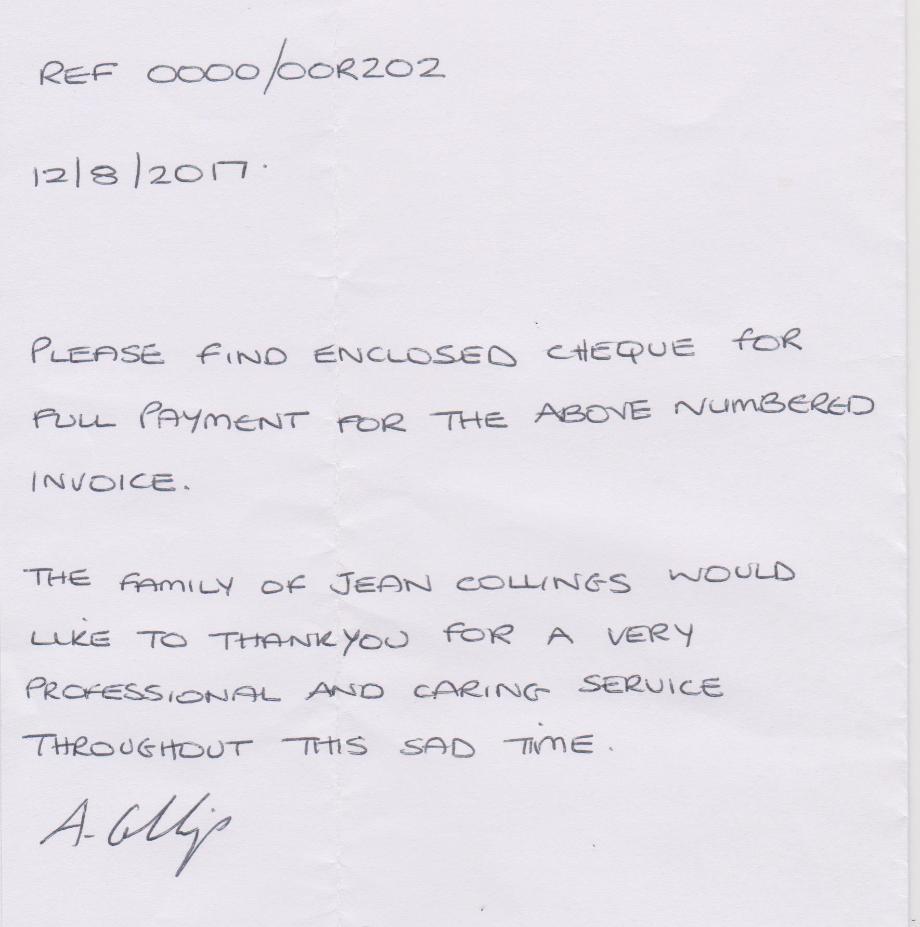 REF 0000/00R202
12/8/2017.
PLEASE FIND ENCLOSED CHEQUE FOR
FULL PAYMENT FOR THE ABOVE NUMBERED
INVOICE.
THE FAMILY OF JEAN COLLINGS WOULD
LIKE TO THANKYOU FOR A VERY
PROFESSIONAL AND CARING SERVICE
THROUGHOUT THIS SAD TIME.
A.